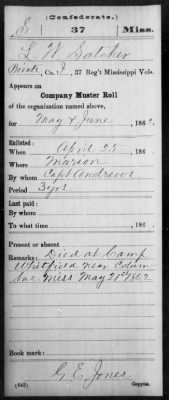 (Confederate.)
S 37 Miss.
L W Satcher
Private, Co. I, 37 Reg't Mississippi Vols.
Appears on
Company Muster Roll
of the organization named above,
for May & June, 1862.
Enlisted:
When April 25, 186 .
Where Marion
By whom Capt Andrews
Period 3 yrs
Last paid:
By whom
To what time , 186 .
Present or absent
Remarks: Died at Camp
Whitfield near Colum
bus Miss May 21st 1862
Book mark:
G. E. Jones
(642) Copyist.